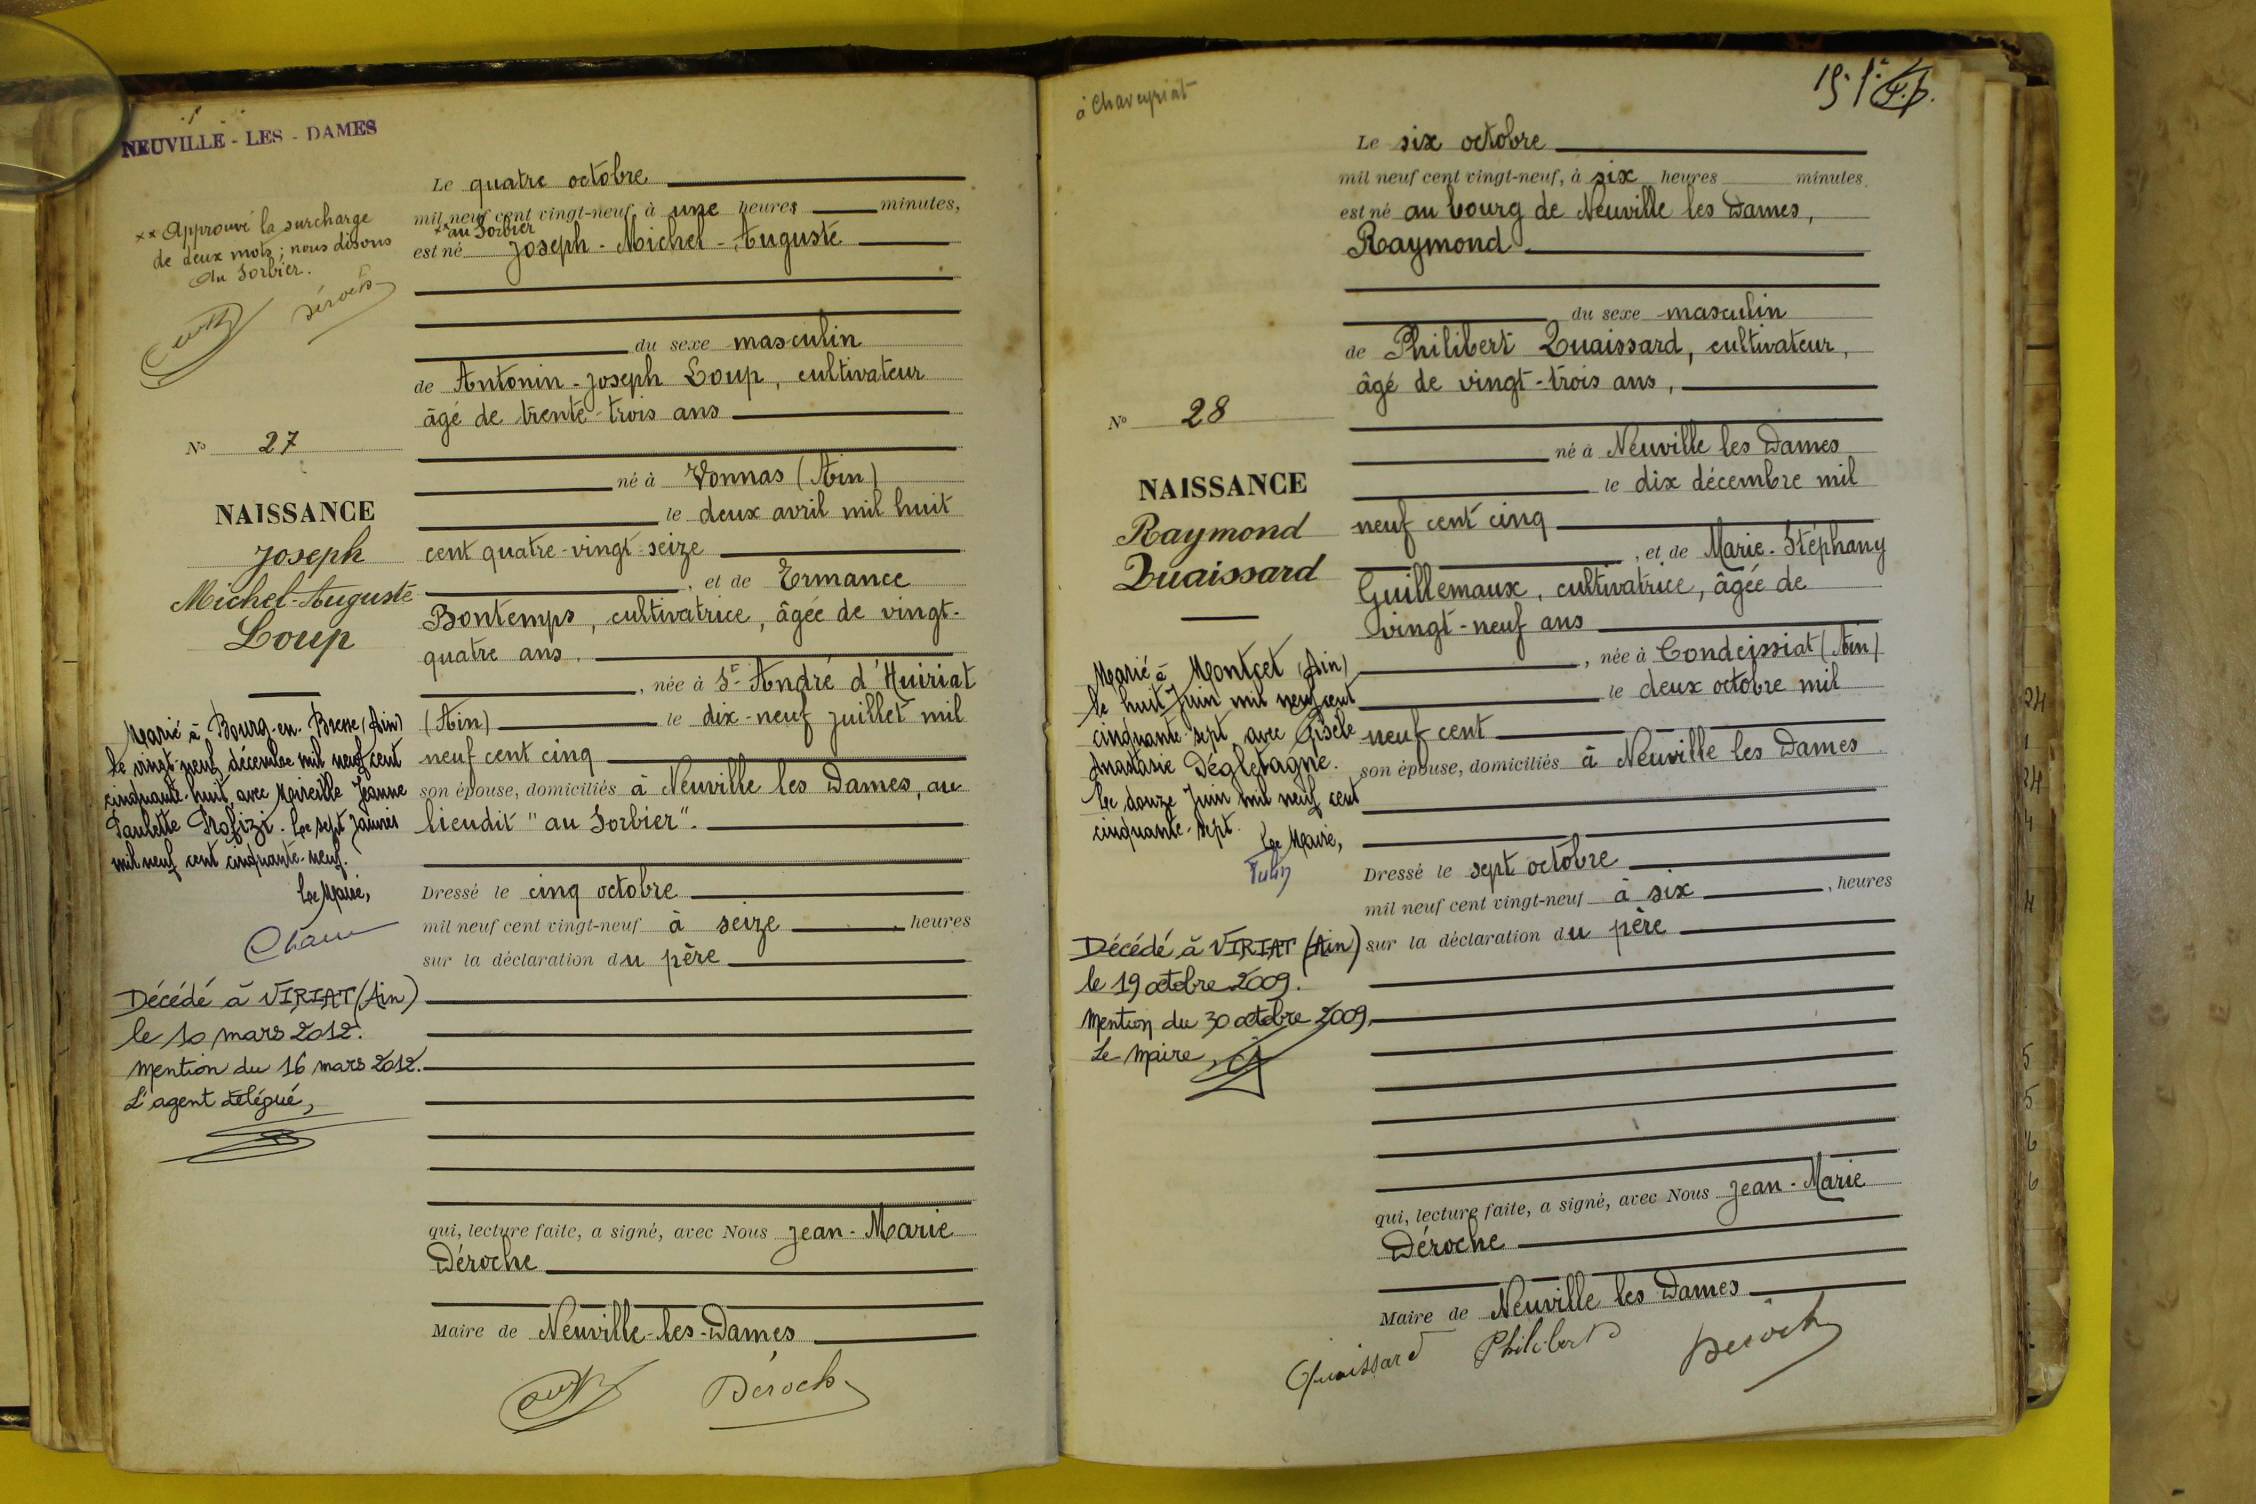 NEUVILLE - LES - DAMES
Le quatre octobre
mil neuf cent vingt-neuf, à une heures minutes,
** au Sorbier
est né Joseph - Michel - Auguste
** Approuvé la surcharge
de deux mots; nous disons
au Sorbier.
Déroche
du sexe masculin
de Antonin - Joseph Loup, cultivateur
âgé de trente-trois ans
No 27
né à Vonnas (Ain)
le deux avril mil huit
cent quatre-vingt-seize
, et de Ermance
Bontemps, cultivatrice, âgée de vingt-
quatre ans.
, née à St André d'Huiriat
(Ain) le dix-neuf juillet mil
neuf cent cinq
son épouse, domiciliés à Neuville les Dames, au
lieudit "au Sorbier".
Dressé le cinq octobre
mil neuf cent vingt-neuf à seize , heures
sur la déclaration du père
NAISSANCE
Joseph
Michel-Auguste
Loup
Marié à Bourg-en-Bresse (Ain)
le vingt-neuf décembre mil neuf cent
cinquante-huit avec Mireille Jeanne
Paulette Profizi. Le sept janvier
mil neuf cent cinquante-neuf.
Le Maire,
Décédé à VIRIAT (Ain)
le 10 mars 2012.
Mention du 16 mars 2012.
L'agent délégué,
qui, lecture faite, a signé, avec Nous Jean - Marie
Déroche
Maire de Neuville-les-Dames
Déroche
à Chaveyriat
Le six octobre
mil neuf cent vingt-neuf, à six heures minutes,
est né au bourg de Neuville les Dames,
Raymond
du sexe masculin
de Philibert Quaissard, cultivateur,
âgé de vingt-trois ans,
No 28
né à Neuville les Dames
le dix décembre mil
neuf cent cinq
, et de Marie-Stéphany
Guillemaux, cultivatrice, âgée de
vingt-neuf ans
, née à Condeissiat (Ain)
le deux octobre mil
neuf cent
son épouse, domiciliés à Neuville les Dames
Dressé le sept octobre
mil neuf cent vingt-neuf à six , heures
sur la déclaration du père
NAISSANCE
Raymond
Quaissard
Marié à Montcet (Ain)
le huit Juin mil neuf cent
cinquante-sept avec Gisèle
Anastasie Dégletagne.
Le douze Juin mil neuf cent
cinquante-sept.
Le Maire,
Décédé à VIRIAT (Ain)
le 19 octobre 2009.
Mention du 30 octobre 2009,
Le Maire,
qui, lecture faite, a signé, avec Nous Jean - Marie
Déroche
Maire de Neuville les Dames
Quaissard Philibert Déroche